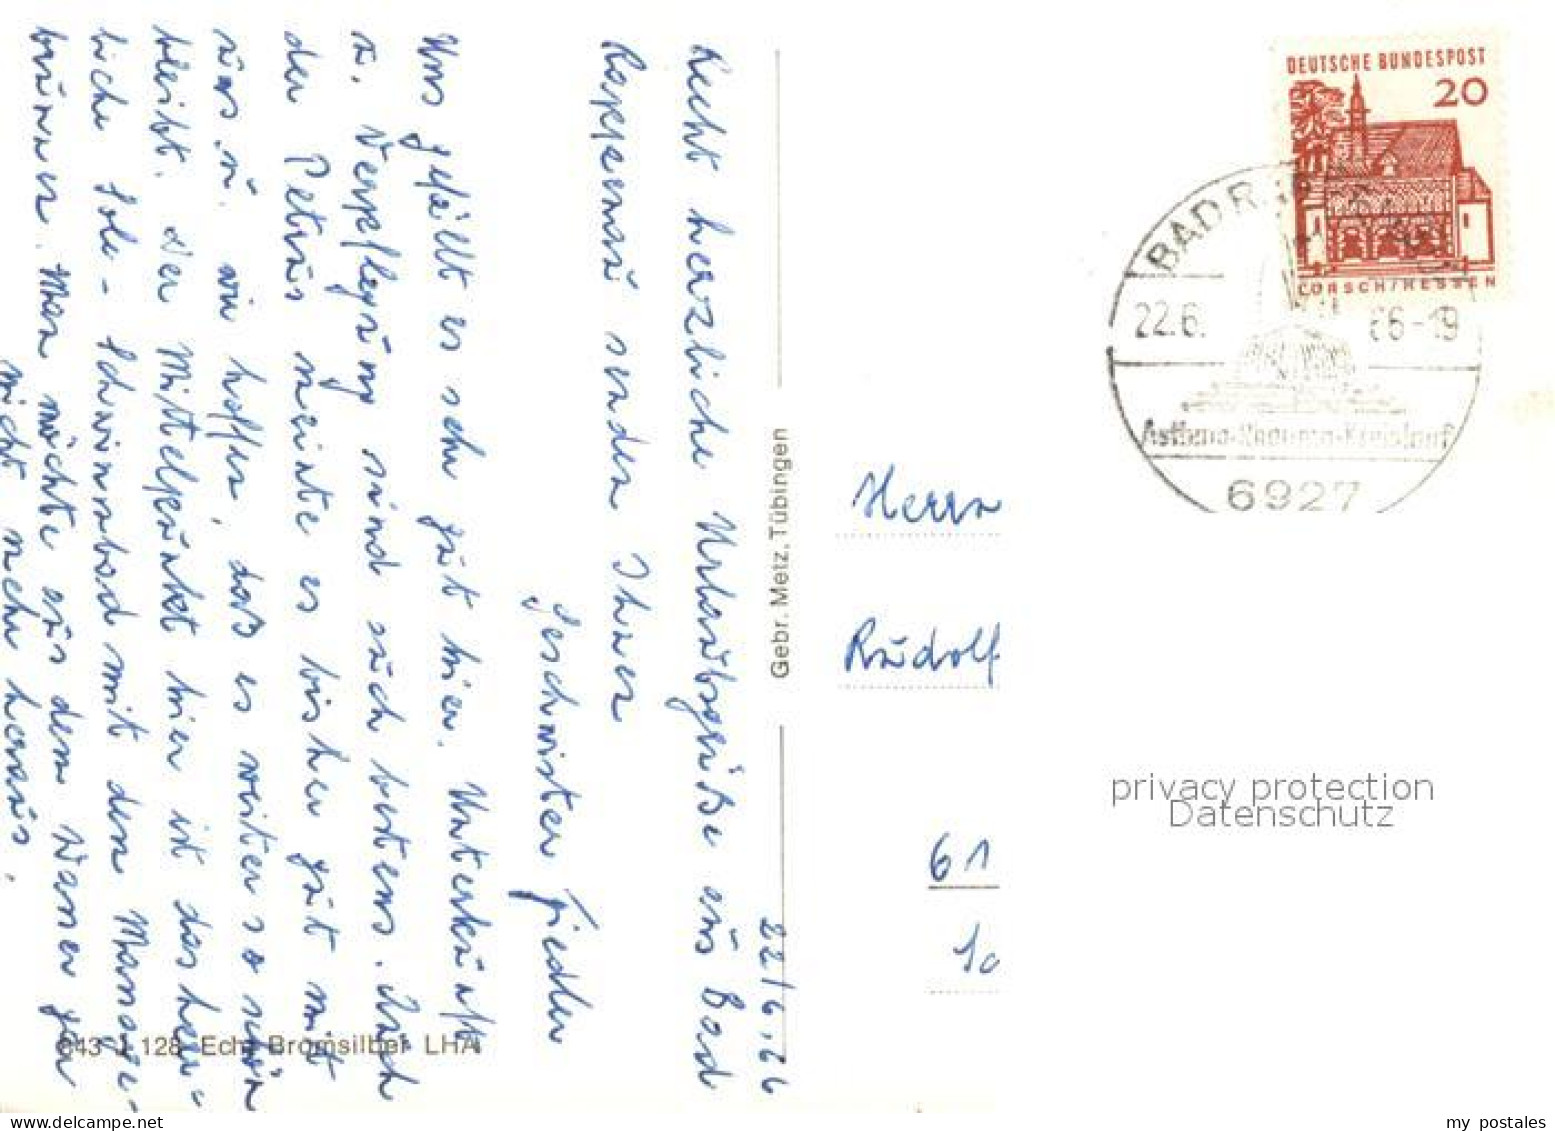 22/6.66
Recht herzliche Urlaubsgrüße aus Bad
Rappenau senden Ihnen
Geschwister Fiedler
Uns gefällt es sehr gut hier. Unterkunft
u. Verpflegung sind auch bestens. Auch
der Petrus meinte es bisher gut mit
uns u. wir hoffen, daß es weiter so schön
bleibt. Der Mittelpunkt hier ist das herr-
liche Sole-Schwimmbad mit den Massage-
brunnen. Man möchte aus dem Wasser gar
nicht mehr heraus.
643 J 128 Echt Bromsilber LHA
Gebr. Metz, Tübingen
DEUTSCHE BUNDESPOST
20
LORSCH/HESSEN
BAD RAPPENAU
22.6. 66-19
Asthma-Rheuma-Kreislauf
6927
Herrn
Rudolf
61
privacy protection
Datenschutz
my postales